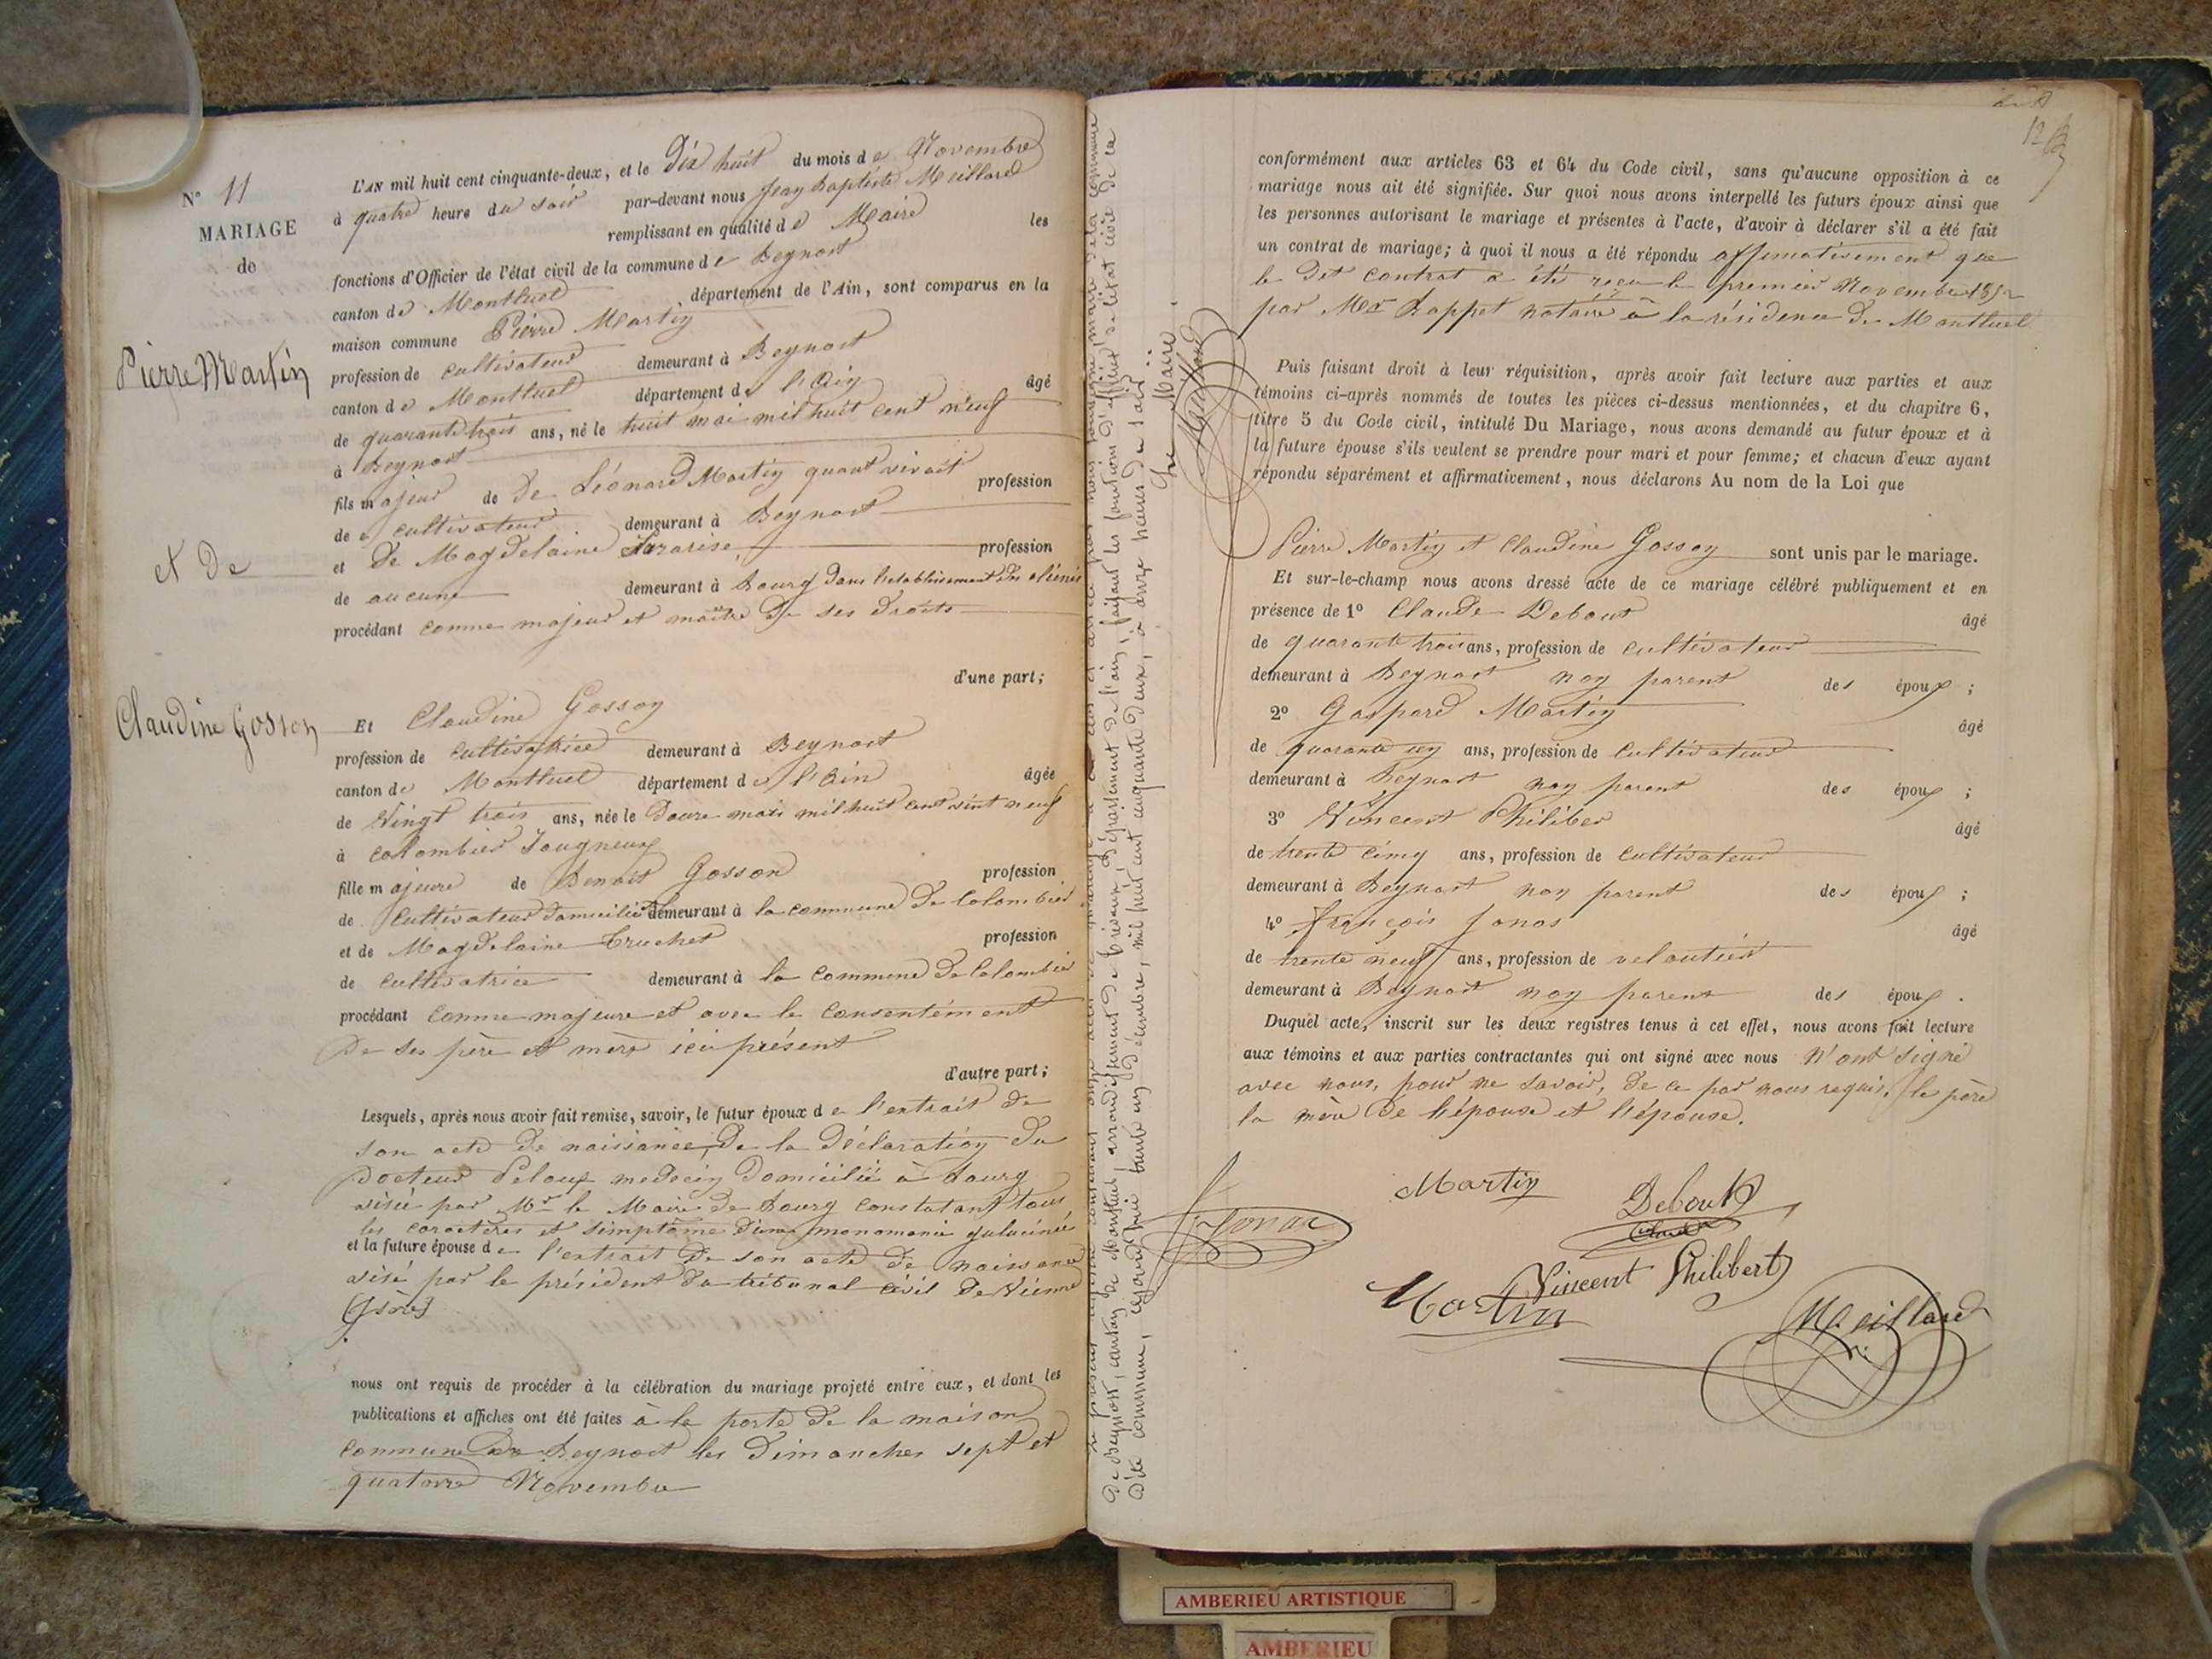 N° 11
MARIAGE
de
Pierre Martin
et De
Claudine Gosson
L'AN mil huit cent cinquante-deux, et le Dix huit du mois de Novembre
à quatre heure du soir par-devant nous Jean Baptiste Meillard
remplissant en qualité de Maire les
fonctions d'Officier de l'état civil de la commune de Beynost
canton de Montluel département de l'Ain, sont comparus en la
maison commune Pierre Martin
profession de cultivateur demeurant à Beynost
canton de Montluel département de l'Ain âgé
de quarante trois ans, né le huit mai mil huit cent neuf
à Beynost
fils majeur de De Léonard Martin quant vivait profession
de cultivateur demeurant à Beynost
et De Magdelaine profession
de aucune demeurant à Bourg dans l'etablissement des aliénés
procédant comme majeur et maître De ses Droits
d'une part;
Et Claudine Gosson
profession de cultivatrice demeurant à Beynost
canton de Montluel département de l'Ain âgée
de Vingt trois ans, née le Douze mars mil huit cent vint neuf
à colombier Saugneux
fille majeure de Benoit Gosson profession
de Cultivateur domicilié demeurant à la commune De Colombier
et de Magdelaine Truchet profession
de cultivatrice demeurant à la commune De Colombier
procédant comme majeure et avec le consentement
De ses père et mère ici présent
d'autre part;
Lesquels, après nous avoir fait remise, savoir, le futur époux de l'extrait de
son acte De naissance, De la Déclaration Du
Docteur Peloux medecin Domicilié à Bourg
visée par Mr le Maire De Bourg constatant tous
les caractères et simptome D'une monomanie
et la future épouse de l'extrait De son acte De naissance
visé par le président Du tribunal civil De Vienne
(Isère)
nous ont requis de procéder à la célébration du mariage projeté entre eux, et dont les
publications et affiches ont été faites à la porte De la maison
commune De Beynost les Dimanches sept et
quatorze Novembre
De Beynost, canton de Montluel, arrondissement de Trévoux, Département de l'ain, faisant les fonctions d'officier de l'état civil de la
Dite commune, aujourd'hui trente un Décembre, mil huit cent cinquante Deux, à onze heures du soir
Le Maire
Meillard
12
conformément aux articles 63 et 64 du Code civil, sans qu'aucune opposition à ce
mariage nous ait été signifiée. Sur quoi nous avons interpellé les futurs époux ainsi que
les personnes autorisant le mariage et présentes à l'acte, d'avoir à déclarer s'il a été fait
un contrat de mariage; à quoi il nous a été répondu affirmativement que
le Dit contrat a été reçu le premier Novembre 1852
par Me Rappet notaire à la résidence De Montluel
Puis faisant droit à leur réquisition, après avoir fait lecture aux parties et aux
témoins ci-après nommés de toutes les pièces ci-dessus mentionnées, et du chapitre 6,
titre 5 du Code civil, intitulé Du Mariage, nous avons demandé au futur époux et à
la future épouse s'ils veulent se prendre pour mari et pour femme; et chacun d'eux ayant
répondu séparément et affirmativement, nous déclarons Au nom de la Loi que
Pierre Martin et Claudine Gosson sont unis par le mariage.
Et sur-le-champ nous avons dressé acte de ce mariage célébré publiquement et en
présence de 1° Claude Debout âgé
de quarante trois ans, profession de cultivateur
demeurant à Beynost non parent des époux ;
2° Gaspard Martin âgé
de quarante un ans, profession de cultivateur
demeurant à Beynost non parent des époux ;
3° Vincent Philiber âgé
de trente cinq ans, profession de cultivateur
demeurant à Beynost non parent des époux ;
4° François Jonas âgé
de trente neuf ans, profession de veloutier
demeurant à Beynost non parent des époux .
Duquel acte, inscrit sur les deux registres tenus à cet effet, nous avons fait lecture
aux témoins et aux parties contractantes qui ont signé avec nous N'ont signé
avec nous, pour ne savoir, De ce par nous requis, le père
la mère De l'épouse et l'épouse.
Martin
Debout
Claude
Jonac
Vincent Philibert
Martin
Meillard
AMBERIEU ARTISTIQUE
AMBERIEU